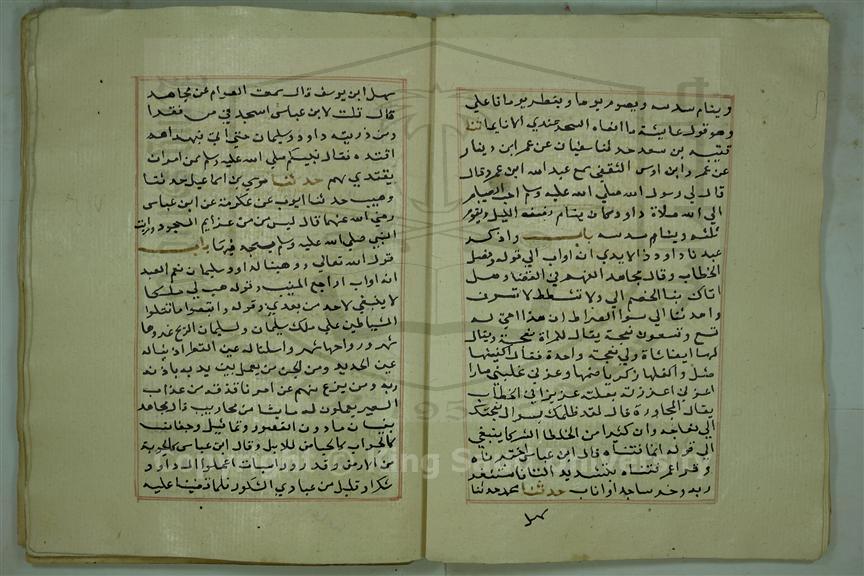 وينام سدسه ويصوم يوما ويفطر يوما قال علي
وهو قول عائشة ما الفاه السحر عندي الا نايما ثنا
قتيبة بن سعد حدثنا سفيان عن عمر ابن دينار
عن عمر وابن اوس الثقفي سمع عبد الله ابن عمر وقال
قال لي رسول الله صلي الله عليه وسلم احب الصيام
الي الله صلاة داود كان ينام نصف الليل ويقوم
ثلثه وينام سدسه باب واذكر
عبدنا داود ذا الايدي انه اواب الي قوله وفصل
الخطاب وقال مجاهد الفهم في القضا وهل
اتاك نبا الخصم الي ولا تشطط لا تسرف
واهدنا الي سوا الصراط ان هذا اخي له
تسع وتسعون نعجة يقال للمراة نعجة ويقال
لها ايضا شاة ولي نعجة واحدة فقال اكفلنيها
مثل وكفلها زكريا ضمها وعزني غلبني صار
اعز مني اعززته جعلته عزيزا في الخطاب
يقال المحاورة قال لقد ظلمك بسوال نعجتك
الي نعاجه وان كثيرا من الخلطا الشركا ليبغي
الي قوله انما فتناه قال ابن عباس اختبرناه
وقرا عمر فتناه بتشديد التا فاستغفر
ربه وخر ساجدا واناب حدثنا محمد حدثنا
سهل
سهل ابن يوسف قال سمعت العوام عن مجاهد
قال قلت لابن عباس اسجد في ص فقرا
ومن ذريته داود وسليمان حتي اتي فبهداهم
اقتده فقال نبيكم صلي الله عليه وسلم ممن امر ان
يقتدي بهم حدثنا موسي بن اسماعيل حدثنا
وهيب حدثنا ايوب عن عكرمة عن ابن عباس
رضي الله عنهما قال ليس ص من عزايم السجود ورايت
النبي صلي الله عليه وسلم يسجد فيها باب
قول الله تعالي ووهبنا لداود سليمان نعم العبد
انه اواب الراجع المنيب وقوله هب لي ملكا
لا ينبغي لاحد من بعدي وقوله واتبعوا ما تتلوا
الشياطين علي ملك سليمان ولسليمان الريح غدوها
شهر ورواحها شهر واسلنا له عين القطر اذبنا له
عين الحديد ومن الجن من يعمل بين يديه باذن
ربه ومن يزغ منهم عن امرنا نذقه من عذاب
السعير يعملون له ما يشا من محاريب قال مجاهد
بنيان ما دون القصور وتماثيل وجفان
كالجواب كالحياض للابل وقال ابن عباس كالجوبة
من الارض وقدور راسيات اعملوا ال داود
شكرا وقليل من عبادي الشكور فلما قضينا عليه